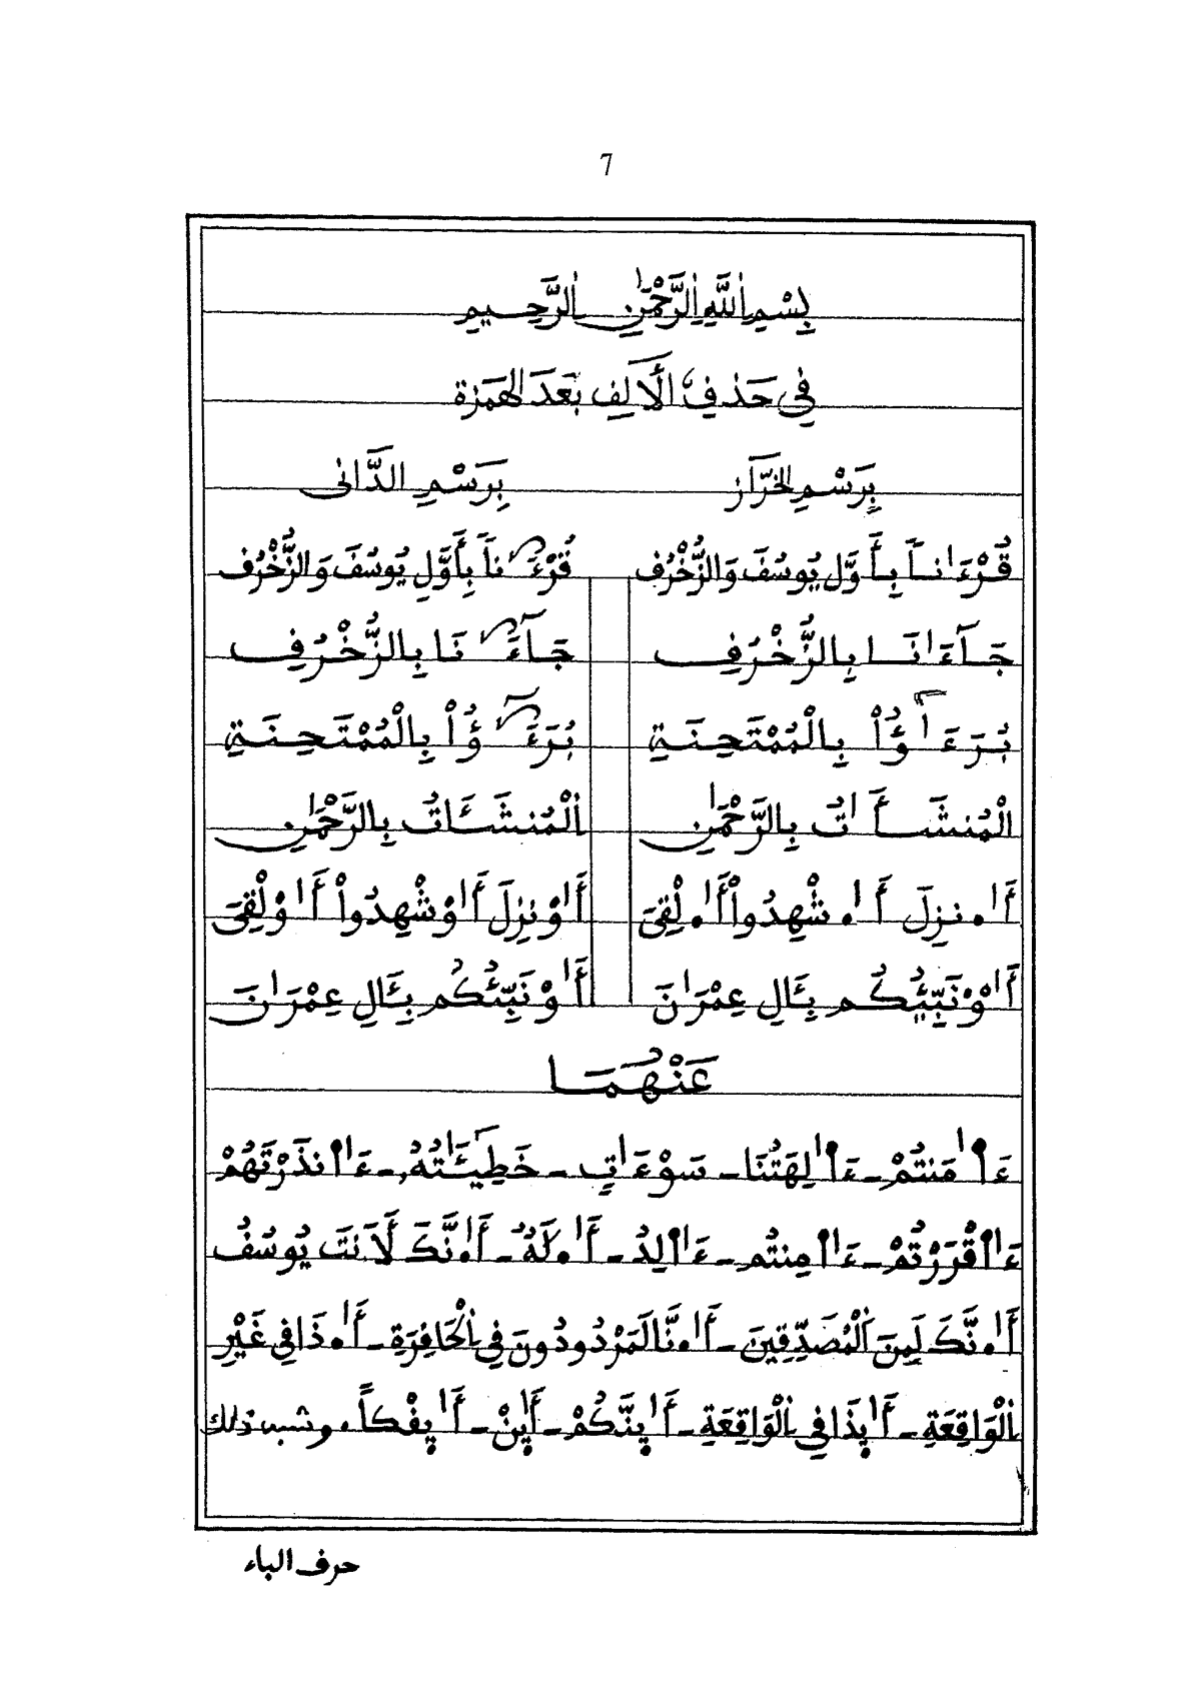 7
بِسْمِ اللَّهِ الرَّحْمَٰنِ الرَّحِيمِ
فِي حَذْفِ الْأَلِفِ بَعْدَ الهَمْزَة
بِرَسْمِ الخَرَّاز بِرَسْمِ الدَّانِى
قُرْءَٰناً بِأَوَّل يُوسُفَ وَالزُّخْرُف قُرْءَ نَاً بِأَوَّلِ يُوسُفَ وَالزُّخْرُف
جَآءَٰنَا بِالزُّخْرُفِ جَآءَ نَا بِالزُّخْرُفِ
بُرَءَٰٓؤُاْ بِالْمُمْتَحِنَةِ بُرَءَ ؤُاْ بِالْمُمْتَحِنَةِ
الْمُنشَـَٔاتُ بِالرَّحْمَٰنِ الْمُنشَـَٔاتُ بِالرَّحْمَٰنِ
أَٰ۟نزِلَ أَٰ۟شْهِدُواْ أَٰ۟لْقِىَ أَٰوْنزِلَ أَٰوْشْهِدُواْ أَٰوْلْقِىَ
أَٰوْنَبِّئُكُم بِـَٔالِ عِمْرَٰنَ أَٰوْنَبِّئُكُم بِـَٔالِ عِمْرَٰنَ
عَنْهُمَا
ءَاٰمَنتُمْ - ءَاٰلِهَتُنَا - سَوْءَٰتِ - خَطِيٓـَٰٔتُهُۥ - ءَاٰنذَرْتَهُمْ
ءَاٰقْرَرْتُمْ - ءَاٰمِنتُم - ءَاٰلِدُ - أَٰ۟لَهٌ - أَٰ۟نَّكَ لَأَنتَ يُوسُفُ
أَٰ۟نَّكَ لَمِنَ الْمُصَدِّقِينَ - أَٰ۟نَّا لَمَرْدُودُونَ فِي الْحَافِرَةِ - أَٰ۟ذَا فِي غَيْرِ
الْوَاقِعَةِ - أَٰيذَا فِي الْوَاقِعَةِ - أَٰينَّكُمْ - أَٰينْ - أَٰيفْكاً. وشبه ذلك
حرف الباء